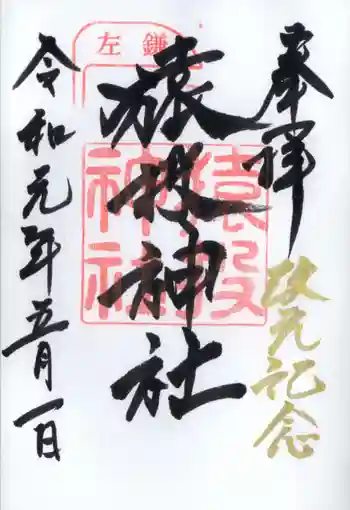 奉拝
改元記念
左鎌
猿投神社
猿投
神社
令和元年五月一日